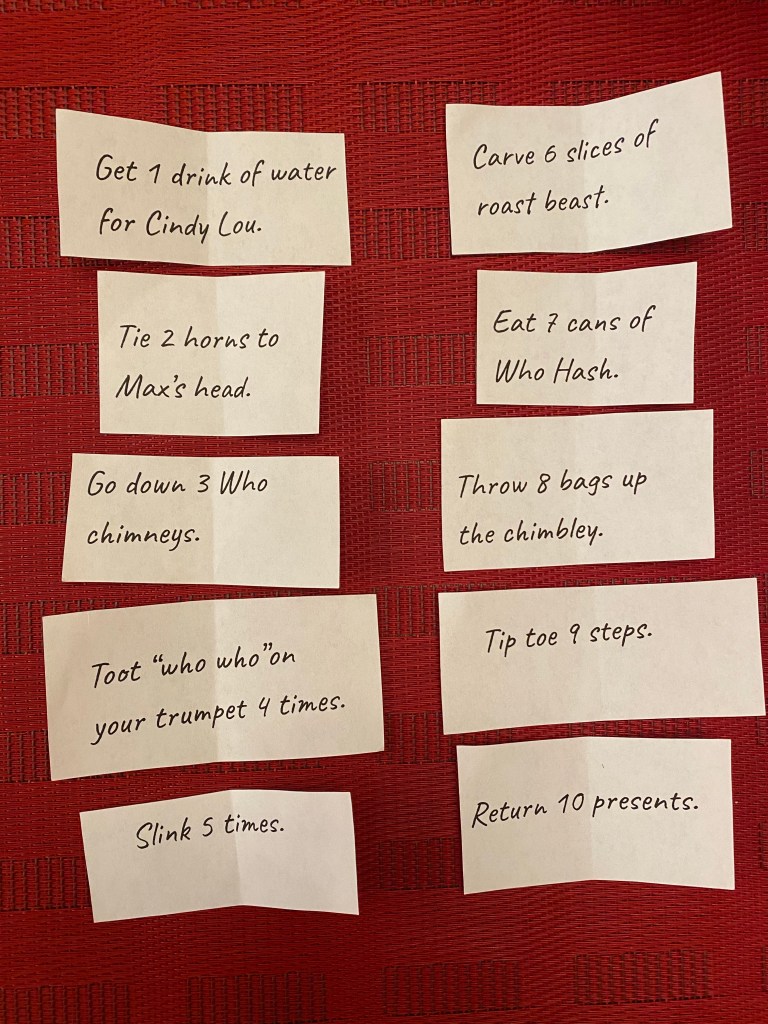 Get 1 drink of water
for Cindy Lou.
Tie 2 horns to
Max's head.
Go down 3 Who
chimneys.
Toot "who who"on
your trumpet 4 times.
Slink 5 times.
Carve 6 slices of
roast beast.
Eat 7 cans of
Who Hash.
Throw 8 bags up
the chimbley.
Tip toe 9 steps.
Return 10 presents.